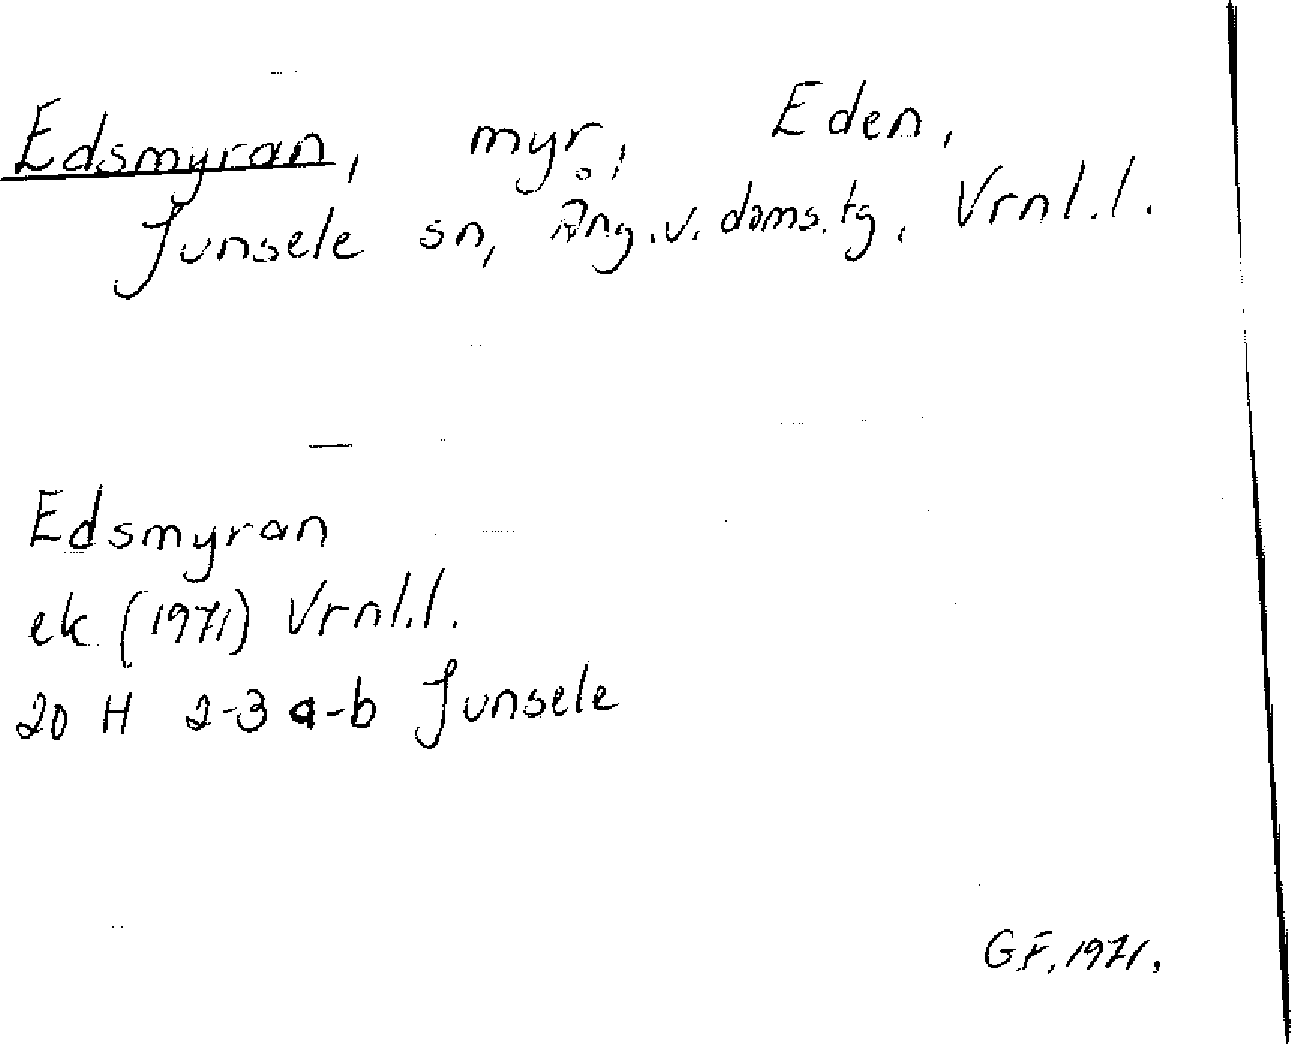 Edsmyran, myr, Eden,
Junsele sn, Ång.v. doms.tg, Vrnl.l.
Edsmyran
ek (1971) Vrnl.l.
20 H 2-3 a-b Junsele
G.F. 1971.